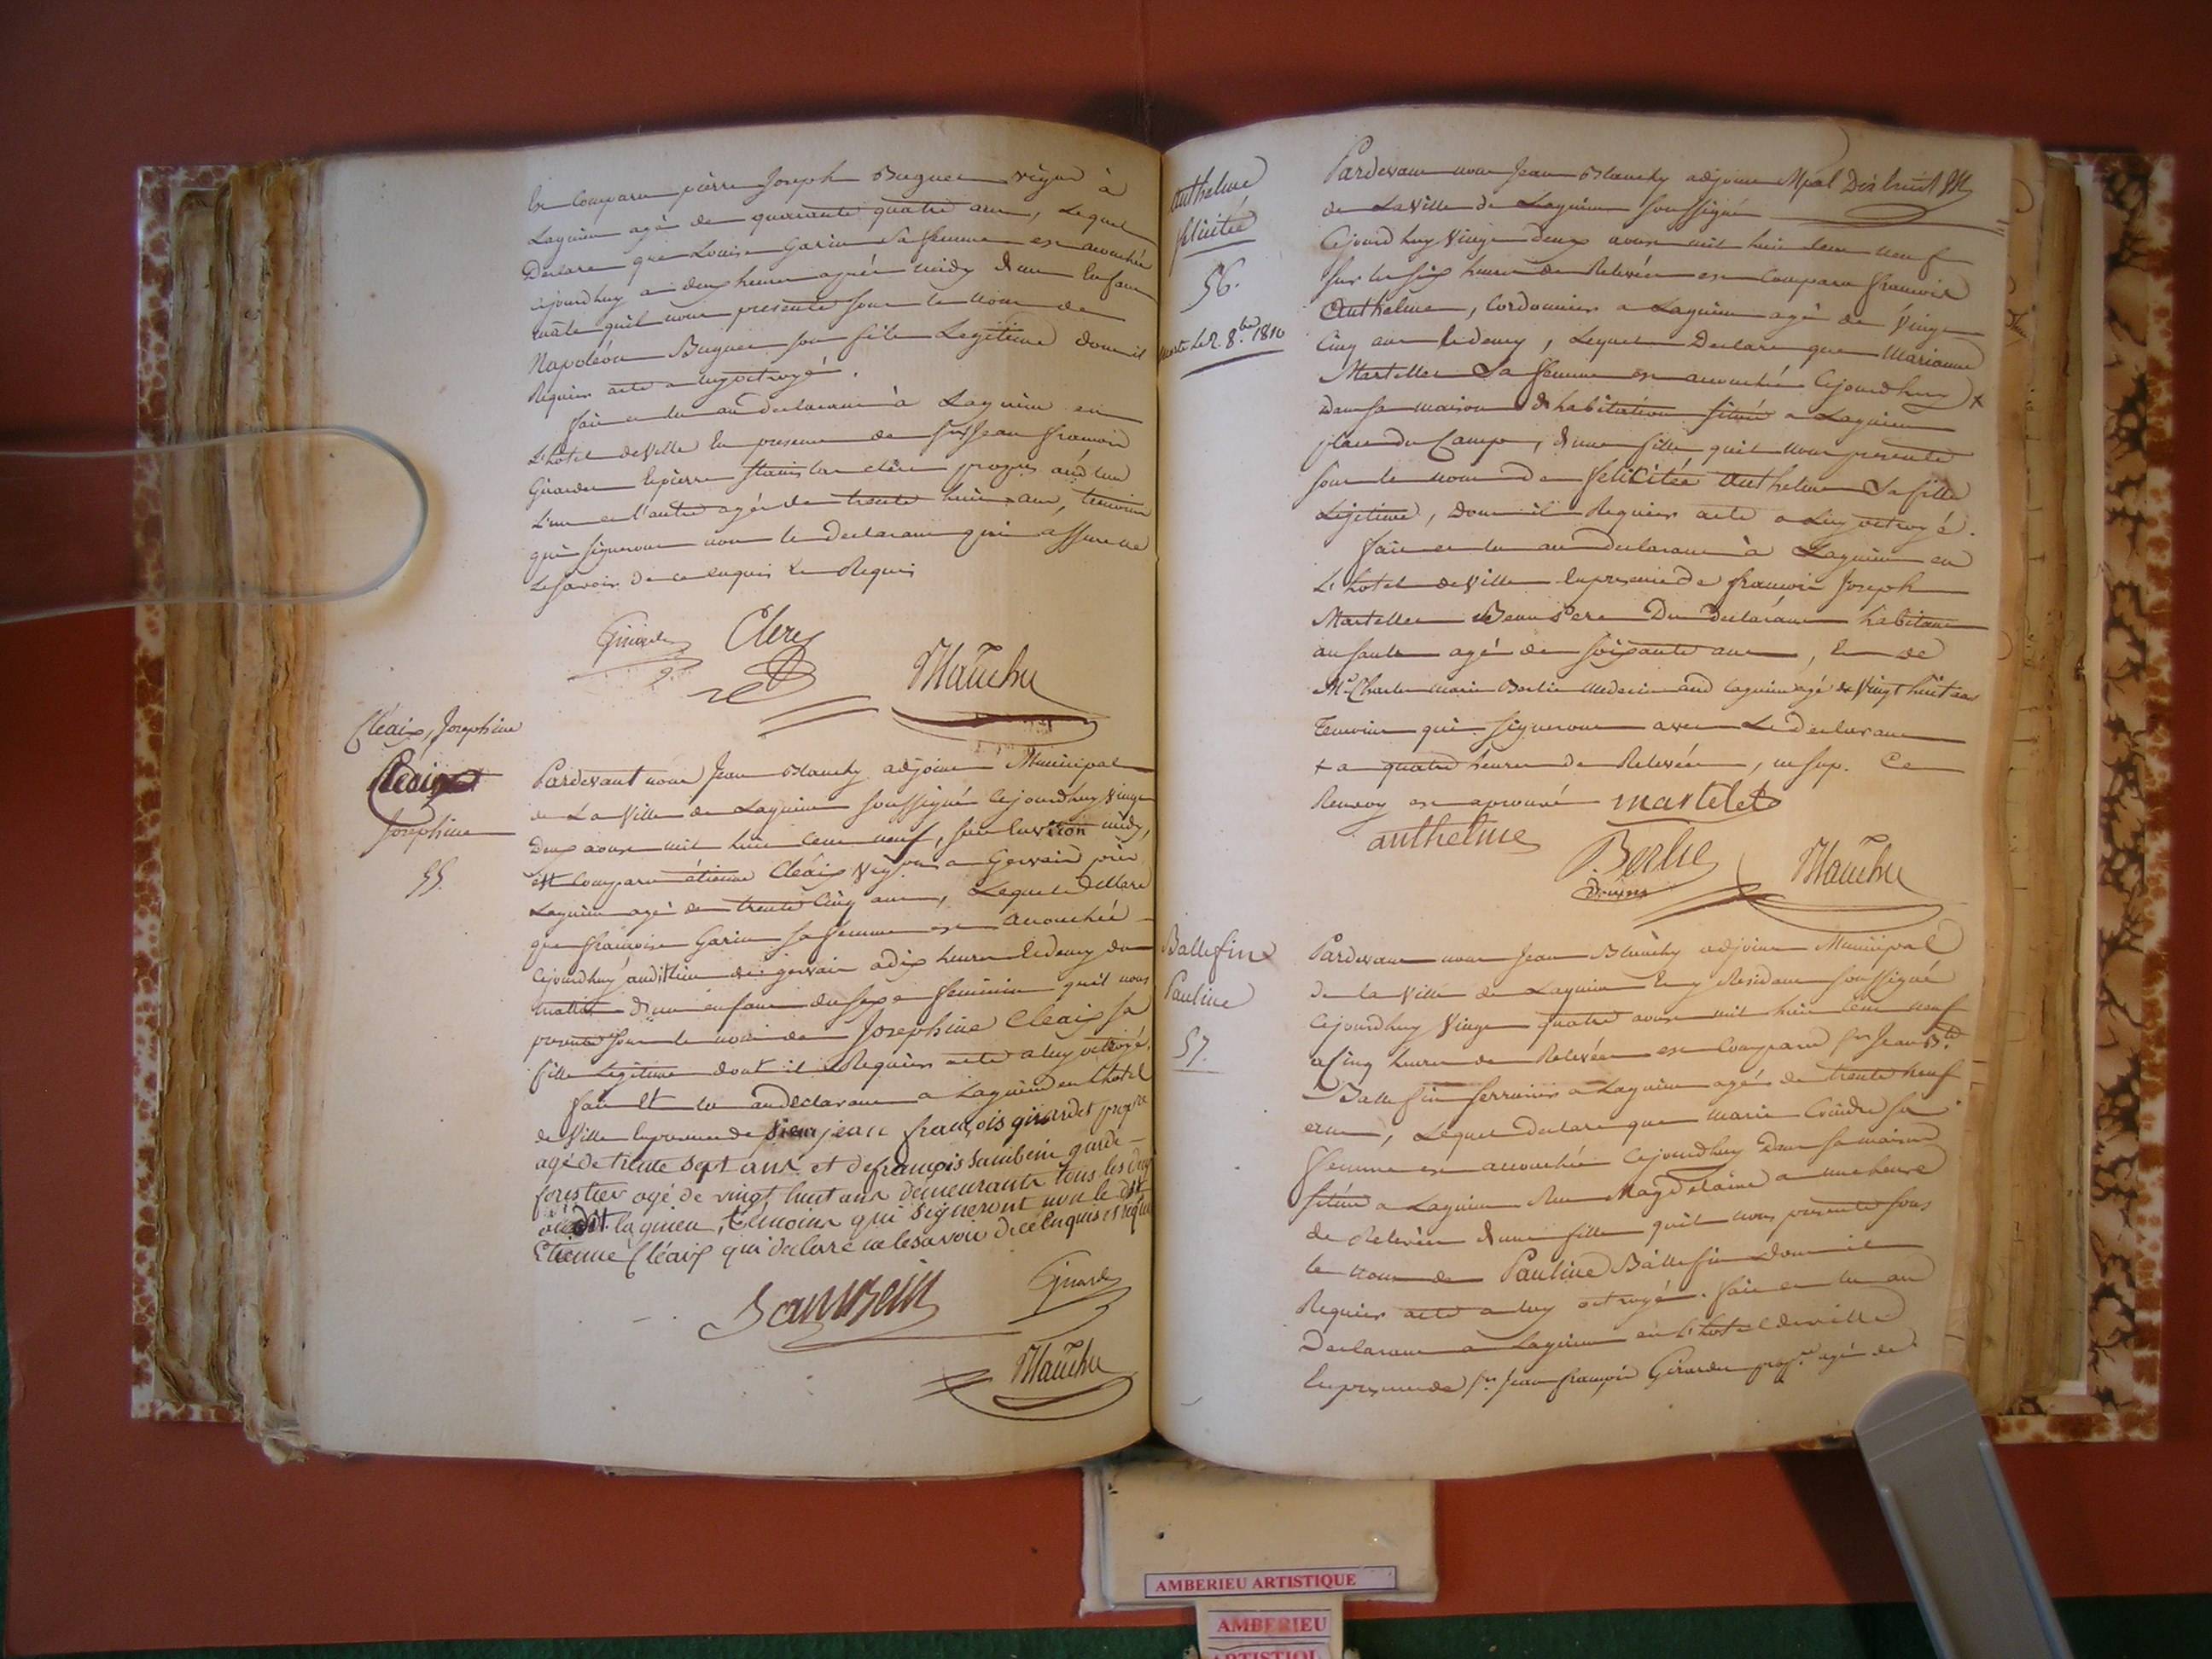 est Comparu pierre Joseph Buguer vigno à
Lagnieu agé de quarante quatre ans, Lequel
Declare que Louise Garin Sa femme est accouchée
cejourdhuy a deux heures après midy d'un Enfant
mâle qu'il nous presente sous le nom de
Napoléon Buguer son fils Legitime dont il
Requier acte a luy octroyé.
fait et lu au declarant à Lagnieu en
L'hotel de Ville En presence de Srs Jean françois
Girardet et pierre Stanislas clerc propres audit lieu
L'un et l'autre agés de trente huit ans, temoins
qui signeront non le declarant qui assure ne
Le savoir de ce enquis et Requis
Girardet Clerc
Blanchy
Cléaix, Josephine
Cléaix
Josephine
55.
Pardevant nous Jean Blanchy adjoint Municipal
de La Ville de Lagnieu soussigné Cejourdhuy Vingt
Deux aoust mil huit cent neuf, sur Environ midy,
est Comparu étienne Cléaix Vigon a Gervais près
Lagnieu agé de trente Cinq ans, Lequel declare
que françoise Garin sa femme est accouchée
Cejourdhuy audit lieu de gervais a dix heures et demy du
matin d'un enfant du sexe feminin qu'il nous
presente sous le nom de Josephine Cleaix sa
fille Legitime dont il Requier acte a luy octroyé.
fait et lu au declarant a Lagnieu en l'hotel
de Ville En presence de Sieur jean françois girardet propre
agé de trente sept ans et de françois Sambein garde
forestier agé de vingt huit ans demeurants tous les deux
audit lagnieu, témoins qui signeront non le dit
Etienne Cléaix qui declare ne le savoir de ce enquis et requis
Sambein Girardet
Blanchy
Anthelme
felicitée
56.
morte le 2. 8.bre 1810
Pardevant nous Jean Blanchy adjoint Mpal
de La Ville de Lagnieu soussigné
Cejourdhuy Vingt deux aoust mil huit cent neuf
sur les six heures de Relevée est Comparu françois
Anthelme, Cordonnier a Lagnieu agé de Vingt
Cinq ans et demy, Lequel Declare que Marianne
Martellet Sa femme est accouchée Cejourdhuy +
dans sa maison d'habitation située a Lagnieu
place du Camp, d'une fille qu'il nous presente
sous le nom de felicitée Anthelme Sa fille
Legitime, dont il Requier acte a Luy octroyé.
fait et lu au declarant à Lagnieu en
L'hotel de Ville En presence de françois Joseph
Martellet Beau Pere Du declarant habitant
au sault agé de soixante ans, Et de
Mr Charles marie Berlie medecin aud Lagnieu agé de Vingt huit ans
Temoins qui signeront avec Le Declarant
+ a quatre heures de Relevée, en sup. Ce
Renvoy est aprouvé martelet
anthelme
Berlie Blanchy
Ballefin
Pauline
57.
Pardevant nous Jean Blanchy adjoint Municipal
de la Ville de Lagnieu En y Residant soussigné
Cejourdhuy Vingt quatre aoust mil huit Cent neuf
a Cinq heures de Relevée est Comparu Sr Jean Bte
Ballefin serrurier a Lagnieu agé de trente neuf
ans, Lequel declare que marie Croindre sa
femme est accouchée Cejourdhuy Dans sa maison
située a Lagnieu Rue Magdelaine a une heure
de Relevée d'une fille qu'il nous presente sous
le nom de Pauline Ballefin dont il
Requier acte a luy octroyé. fait et lu au
Declarant a Lagnieu en L'hotel de ville
En presence de Sr Jean françois Girardet propre agé de
AMBERIEU ARTISTIQUE
AMBERIEU
ARTISTIQU